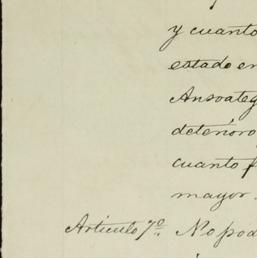 y cuanto
estado en
Ansoateg
deterioro
cuanto f
mayor.
Artículo 7º No pod